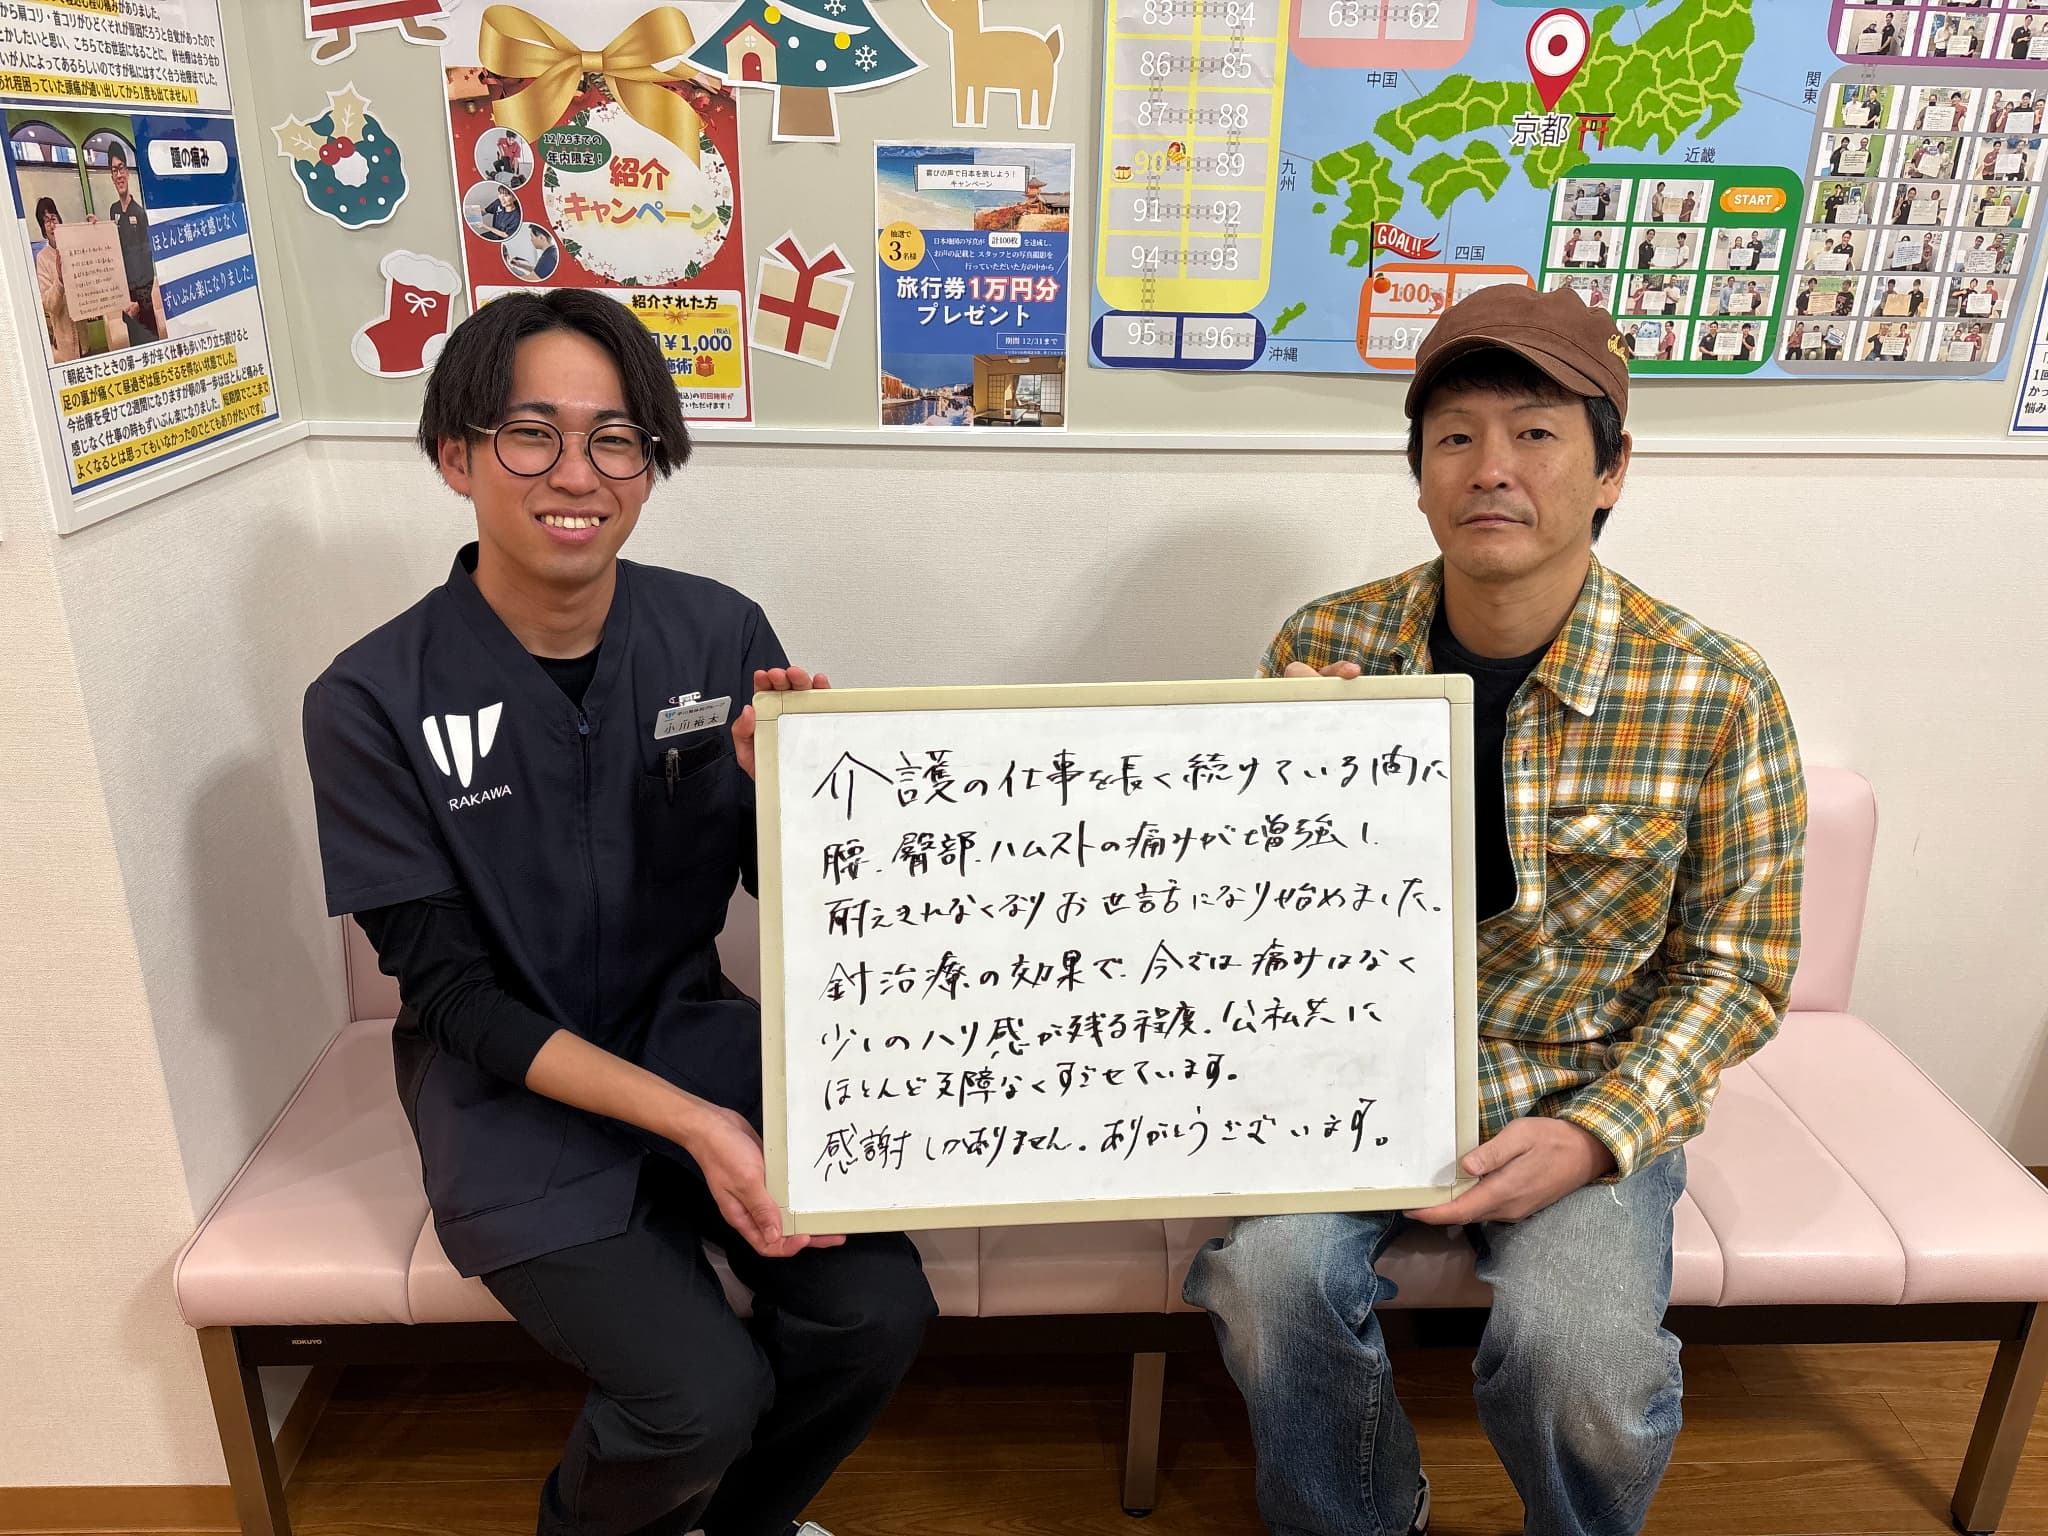 介護の仕事を長く続けている間に
腰、臀部、ハムストの痛みが増強し、
耐えきれなくなりお世話になり始めました。
針治療の効果で、今では痛みはなく
少しのハリ感が残る程度。公私共に
ほとんど支障なくすごせています。
感謝しかありません。ありがとうございます。
RAKAWA
小川裕太
から肩コリ・首コリがひどくそれが原因だろうと自覚があったので
とかしたいと思い、こちらでお世話になることに、針治療は合う合わ
いが人によってあるらしいのですが私にはすごく合う治療法でした。
あれ程困っていた頭痛が通い出してから1度も出てません!!
踵の痛み
ほとんど痛みを感じなく
ずいぶん楽になりました。
「朝起きたときの第一歩が辛く仕事も歩いたり立ち続けると
足の裏が痛くて昼過ぎは座らざるを得ない状態でした。
今治療を受けて2週間になりますが朝の第一歩はほとんど痛みを
感じなく仕事の時もずいぶん楽になりました。短期間でここまで
よくなるとは思ってもいなかったのでとてもありがたいです。」
12/29までの
年内限定!
紹介
キャンペーン
紹介された方
¥1,000
(税込)
施術
喜びの声で日本を旅しよう!
キャンペーン
抽選で
3名様
日本地図の写真が 計100枚 を達成し、
お声の記載と スタッフとの写真撮影を
行っていただいた方の中から
旅行券1万円分
プレゼント
期間 12/31まで
83 84
86 85
87 88
90 89
91 92
94 93
95 96
沖縄
63 62
中国
九州
京都
近畿
関東
四国
START
GOAL!!
100
97
KOKUYO